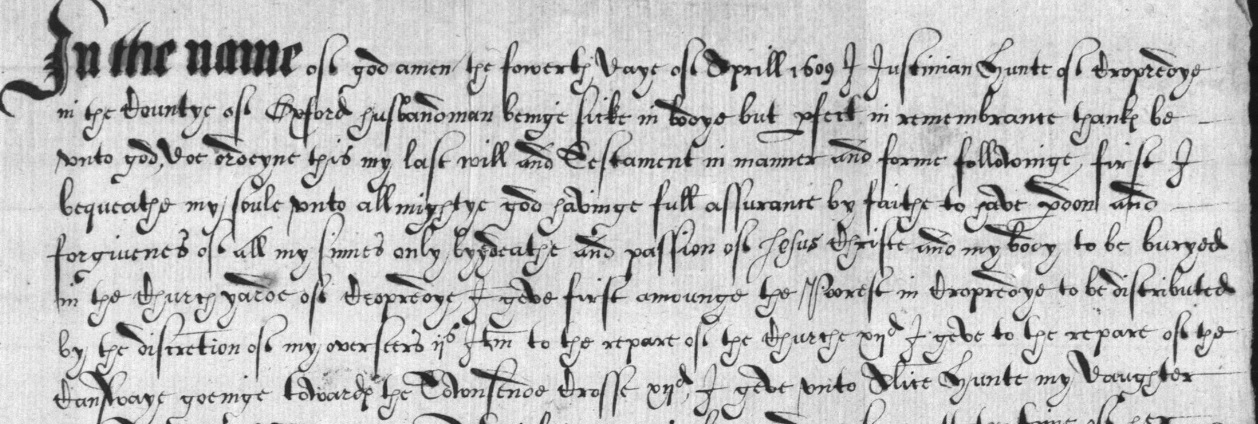 In the name of god amen the fowerth daye of Aprill 1609 I Justinian Hunte of Cropredye
in the Countye of Oxford husbandman beinge sicke in bodye but pfect in remembrance thankes be
unto god, doe ordeyne this my last will and Testament in manner and forme followinge, first I
bequeathe my soule unto allmightye god havinge full assurance by faithe to have pdon and
forgivenes of all my sinnes only by deathe and passion of Jhesus Christe and my body to be buryed
in the Church yarde of Cropredye I geve first amounge the Poorest in Cropredye to be distributed
by the discretion of my overseers ijs Itm to the repare of the Churche xijd I geve to the repare of the
Canswaye goeinge towardes the Townsende Crosse xijd, I geve unto Alice Hunte my daughter